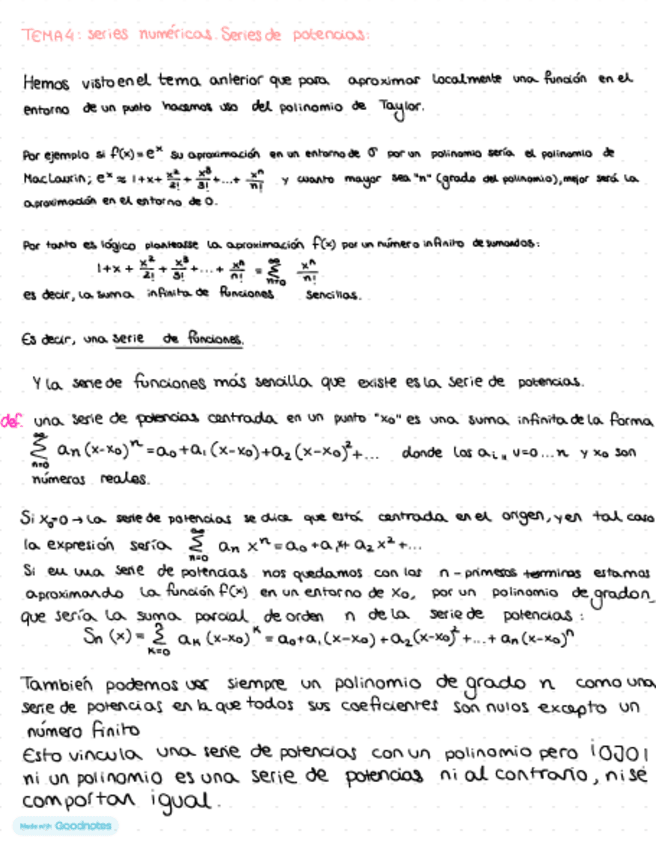 TEMA 4: series numéricas. Series de potencias:
Hemos visto en el tema anterior que para aproximar localmente una función en el
entorno de un punto hacemos uso del polinomio de Taylor.
Por ejemplo si f(x)=e^x su aproximación en un entorno de 0 por un polinomio sería el polinomio de
MacLaurin; e^x ≈ 1+x+ x²/2! + x³/3! +...+ x^n/n! y cuanto mayor sea "n" (grado del polinomio), mejor será la
aproximación en el entorno de 0.
Por tanto es lógico plantearse la aproximación f(x) por un número infinito de sumandos:
1+x+ x²/2! + x³/3! +...+ x^n/n! = ∑_{n=0}^{∞} x^n/n!
es decir, la suma infinita de funciones sencillas.
Es decir, una serie de funciones.
Y la serie de funciones más sencilla que existe es la serie de potencias.
def. una serie de potencias centrada en un punto "x0" es una suma infinita de la forma
∑_{n=0}^{∞} an (x-x0)^n = a0+a1(x-x0)+a2(x-x0)²+... donde los ai, ∀=0...n y x0 son
números reales.
Si x0=0 → la serie de potencias se dice que está centrada en el origen, y en tal caso
la expresión sería ∑_{n=0}^{∞} an x^n = a0+a1x+a2x²+...
Si en una serie de potencias nos quedamos con los n-primeros terminos estamos
aproximando la función f(x) en un entorno de x0, por un polinomio de grado n,
que sería la suma parcial de orden n de la serie de potencias:
Sn(x) = ∑_{k=0}^{n} ak (x-x0)^k = a0+a1(x-x0)+a2(x-x0)²+...+an(x-x0)^n
También podemos ver siempre un polinomio de grado n como una
serie de potencias en la que todos sus coeficientes son nulos excepto un
número finito
Esto vincula una serie de potencias con un polinomio pero ¡OJO!
ni un polinomio es una serie de potencias ni al contrario, ni se
comportan igual.
Made with Goodnotes